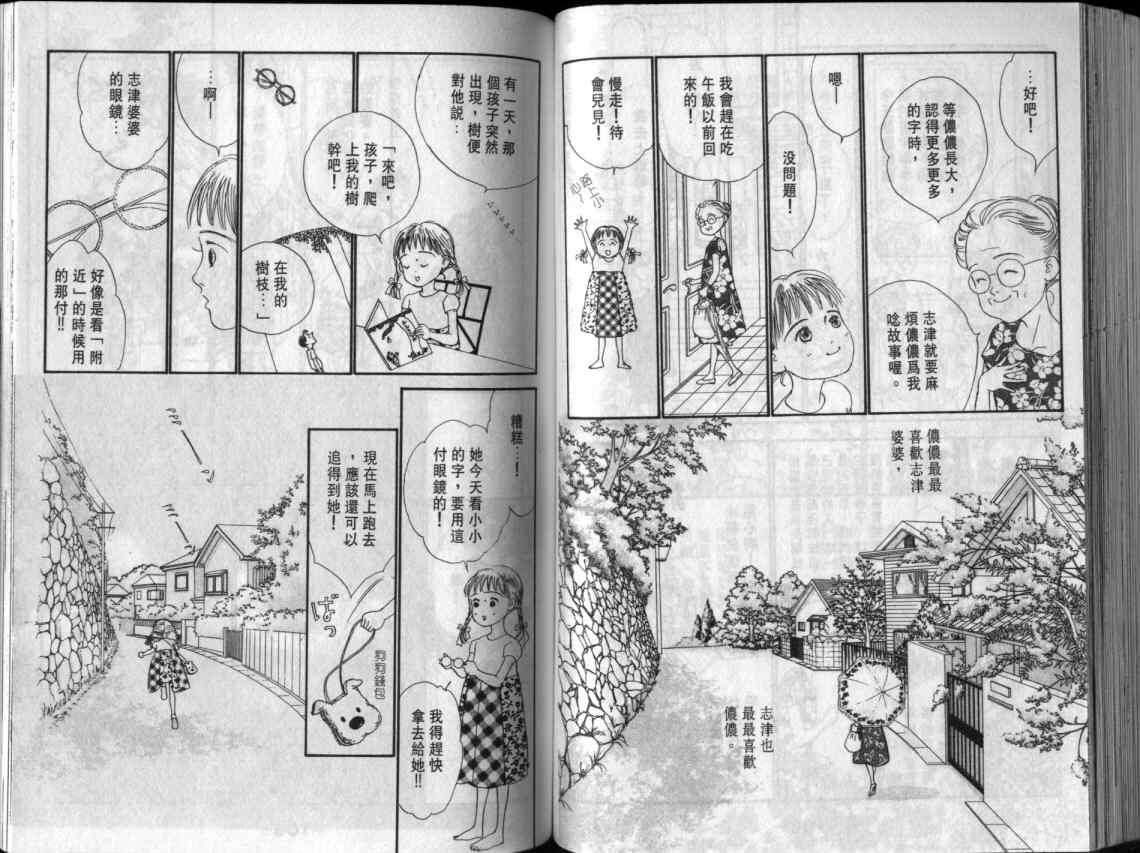 …好吧！
等儂儂長大，
認得更多更多
的字時，
志津就要麻
煩儂儂爲我
唸故事喔。
嗯—
没問題！
我會趕在吃
午飯以前回
來的！
慢走！待
會兒見！
路上小
心～
儂儂最最
喜歡志津
婆婆，
志津也
最最喜歡
儂儂。
有一天，那
個孩子突然
出現，樹便
對他説：
「來吧，
孩子，爬
上我的樹
幹吧！
在我的
樹枝…」
…啊—
志津婆婆
的眼鏡…
好像是看「附
近」的時候用
的那付!!
糟糕…！
她今天看小小
的字，要用這
付眼鏡的！
我得趕快
拿去給她!!
現在馬上跑去
，應該還可以
追得到她！
ばっ
狗狗錢包